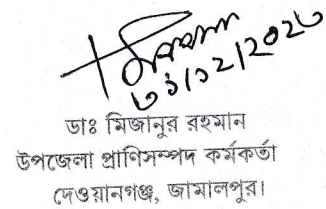 ৩১/১২/২০২৩
ডাঃ মিজানুর রহমান
উপজেলা প্রাণিসম্পদ কর্মকর্তা
দেওয়ানগঞ্জ, জামালপুর।